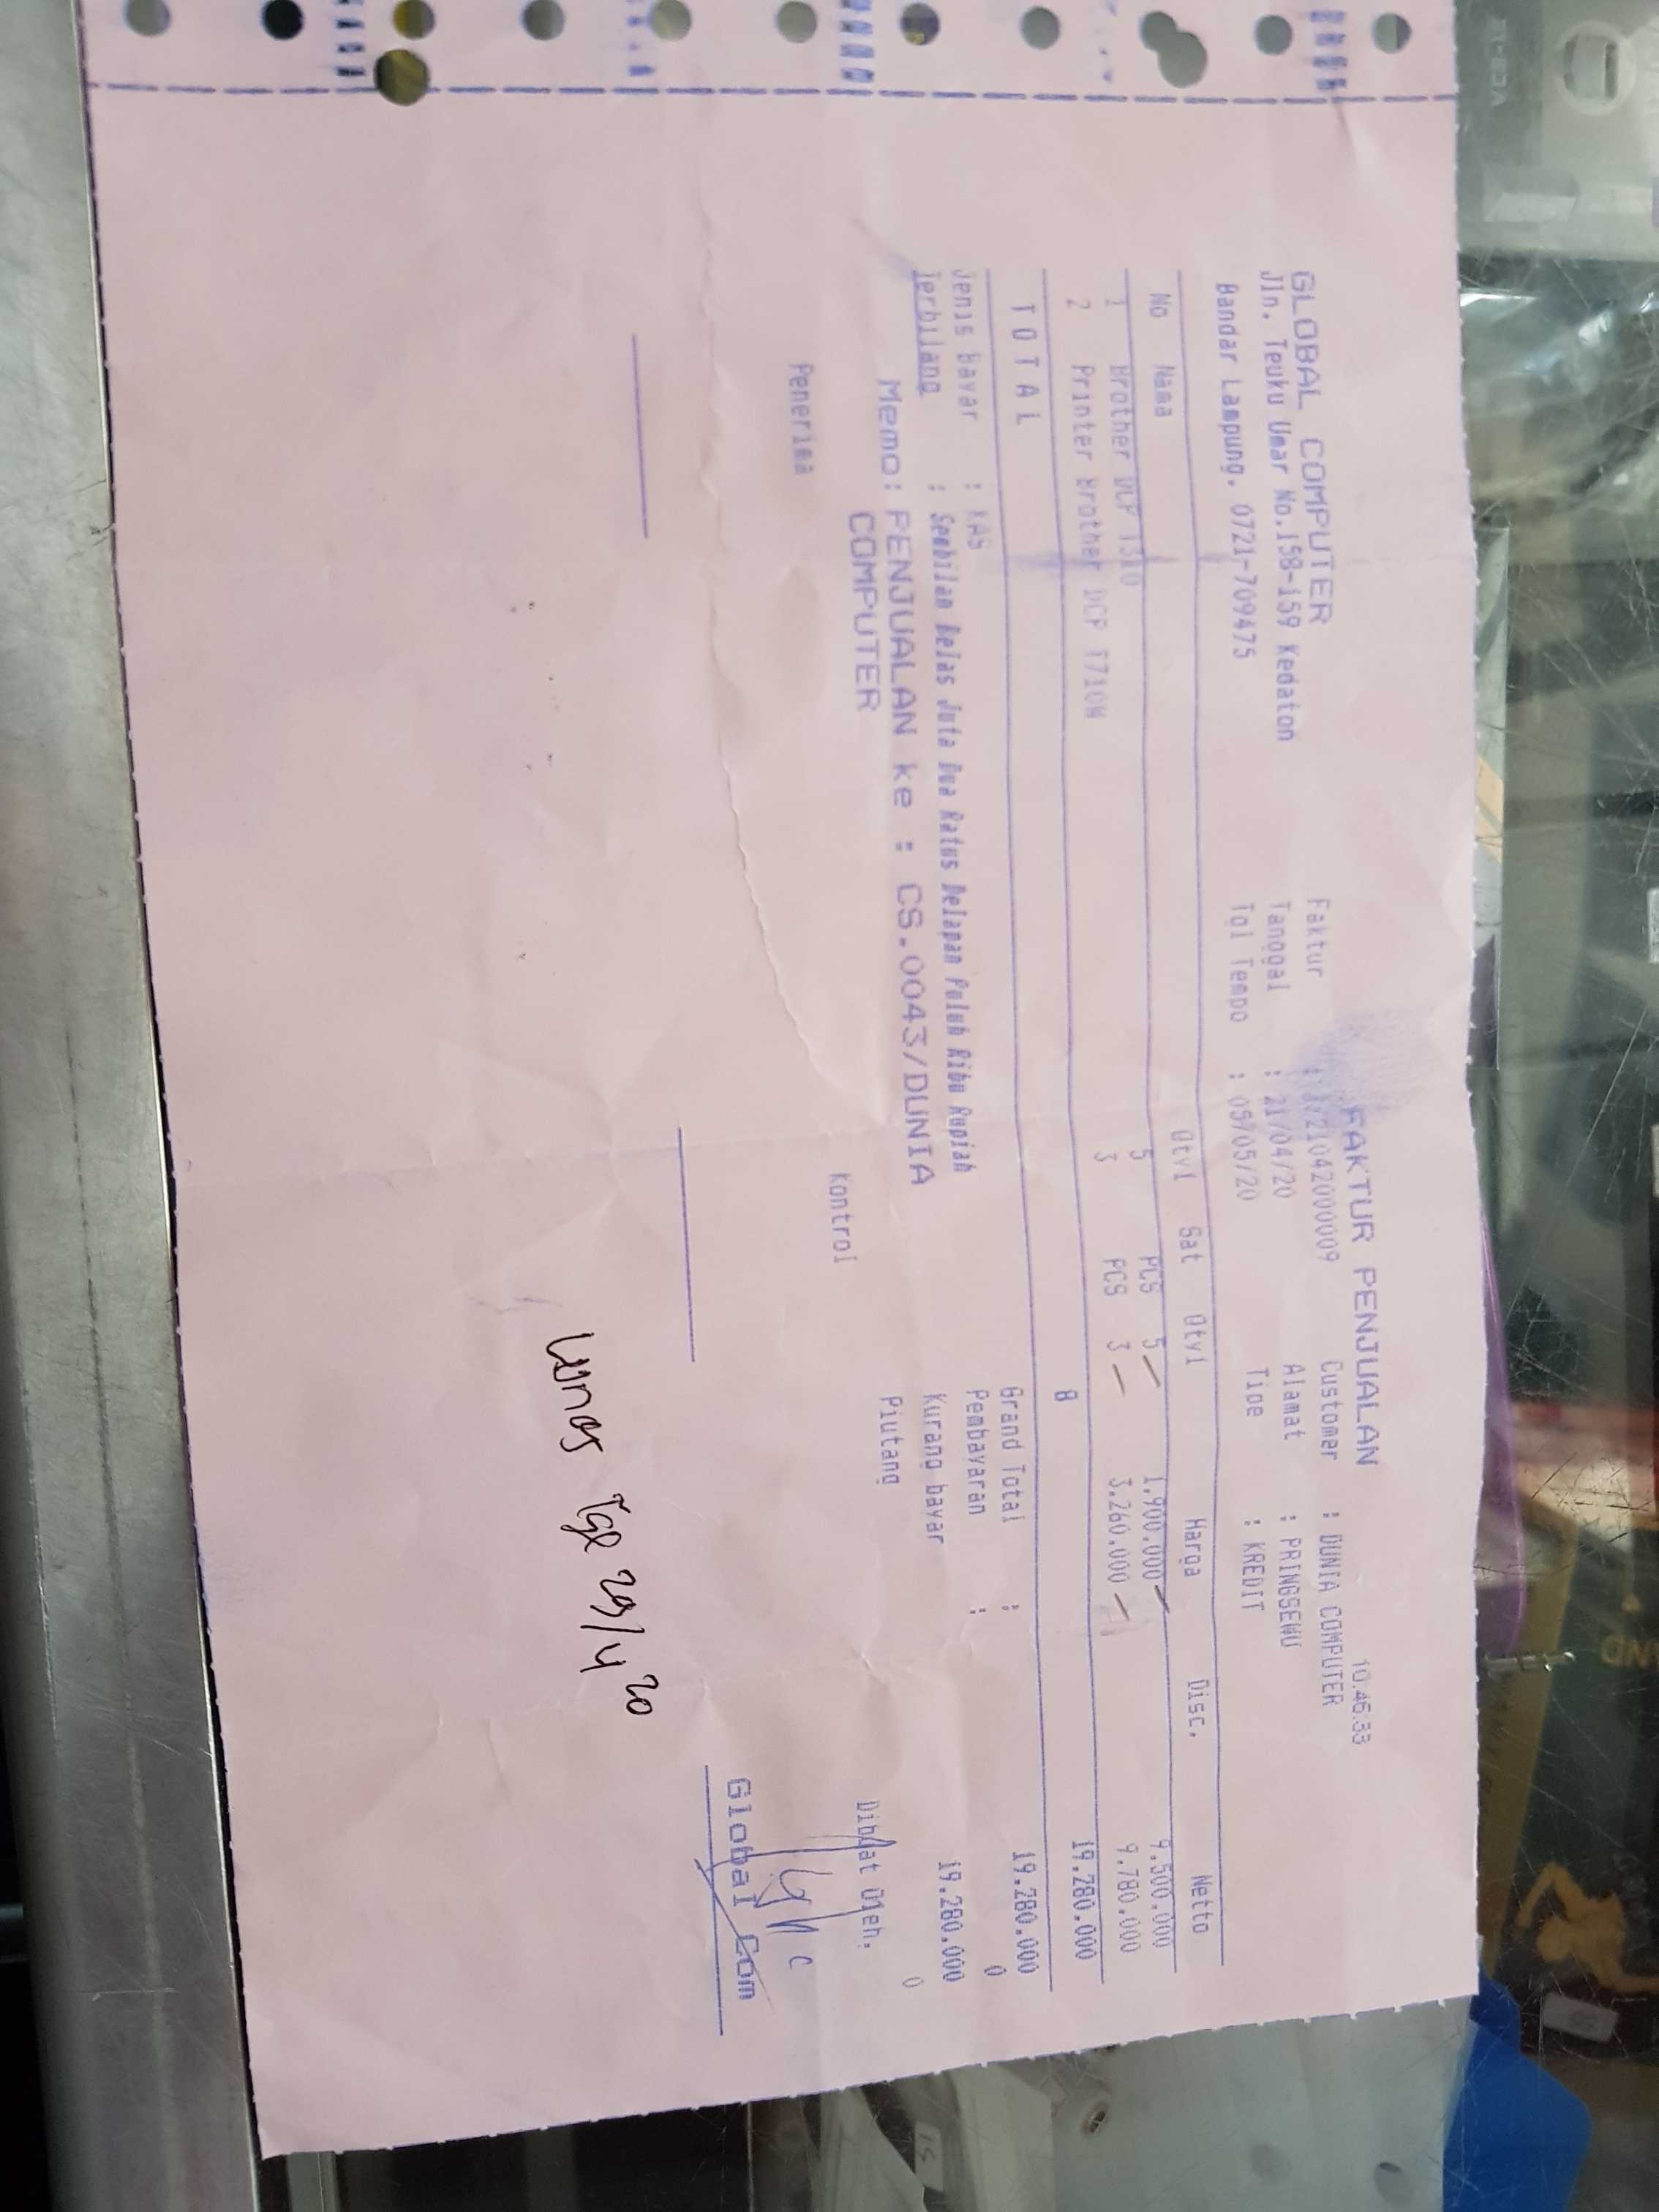 FAKTUR PENJUALAN 10.45.33
GLOBAL COMPUTER
Jln. Teuku Umar No.158-159 Kedaton
Bandar Lampung. 0721-709475
Faktur :
Tanggal : 21/04/20
Tgl Tempo : 05/05/20
Customer : DUNIA COMPUTER
Alamat : PRINGSEWU
Tipe : KREDIT
No Nama Qty1 Sat Qty1 Harga Disc. Netto
1 Brother DCP T310 5 PCS 5 1.900.000 9.500.000
2 Printer Brother DCP T710W 3 PCS 3 3.260.000 9.780.000
T O T A L 8 19.280.000
Jenis bayar : KAS
Terbilang : Sembilan Belas Juta Dua Ratus Delapan Puluh Ribu Rupiah
Memo: PENJUALAN ke : CS.0043/DUNIA
COMPUTER
Grand Total : 19.280.000
Pembayaran : 0
Kurang bayar 19.280.000
Piutang 0
Penerima Kontrol Dibuat Oleh.
Global Com
Lunas Tgl 29/4 20